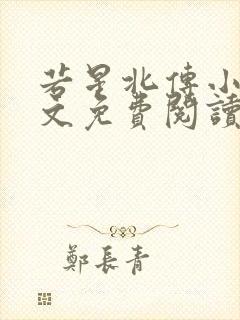 若星北傳小
文免費閱讀
鄭長青